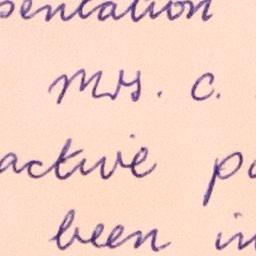 sentation
Mrs. C.
active pa
been in